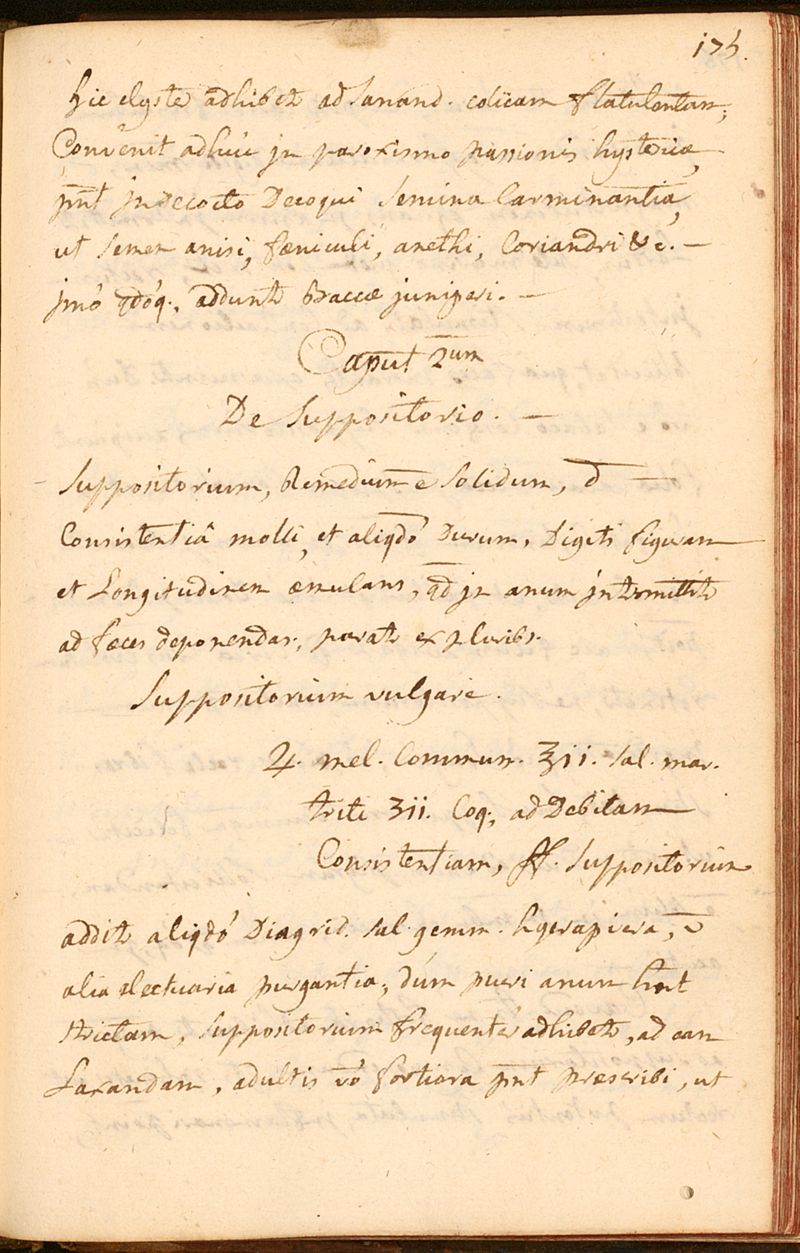 175.
hic clyster adhibetr ad sanand. colicam flatulentam;
Convenit adhuc jn paroxismo passionis hystericæ,
pnt jn decocto Decoqui Semina Carminantia,
ut semen anisi, fæniculi, anethi, Coriandri &c. —
jmò qdoq., adduntr Baccæ juniperi. —
Caput 2um
De Suppositorio. —
Suppositorium, Remedium ē Solidum, d̄
Consistentiâ molli, et aliqdo Durum, Digiti figuram
et Longitudinem æmulans, qd jn anum jntromittitr
ad fæces deponendas, paratr ex pluribs.
Suppositorium vulgare.
♃. mel. Commun. ℥ii. sal. mar.
triti ʒii. Coq, ad Debitam
Consistentiam, ff. Suppositorium
additr aliqdo Diagrid. sal. gemm. hyerapicra, ē
alia electuaria purgantia, dum pueri anum hnt
strictam, Suppositorium frequenter adhibetr, ad eam
Laxandam, adultis vo fortiora pnt præscribi, ut